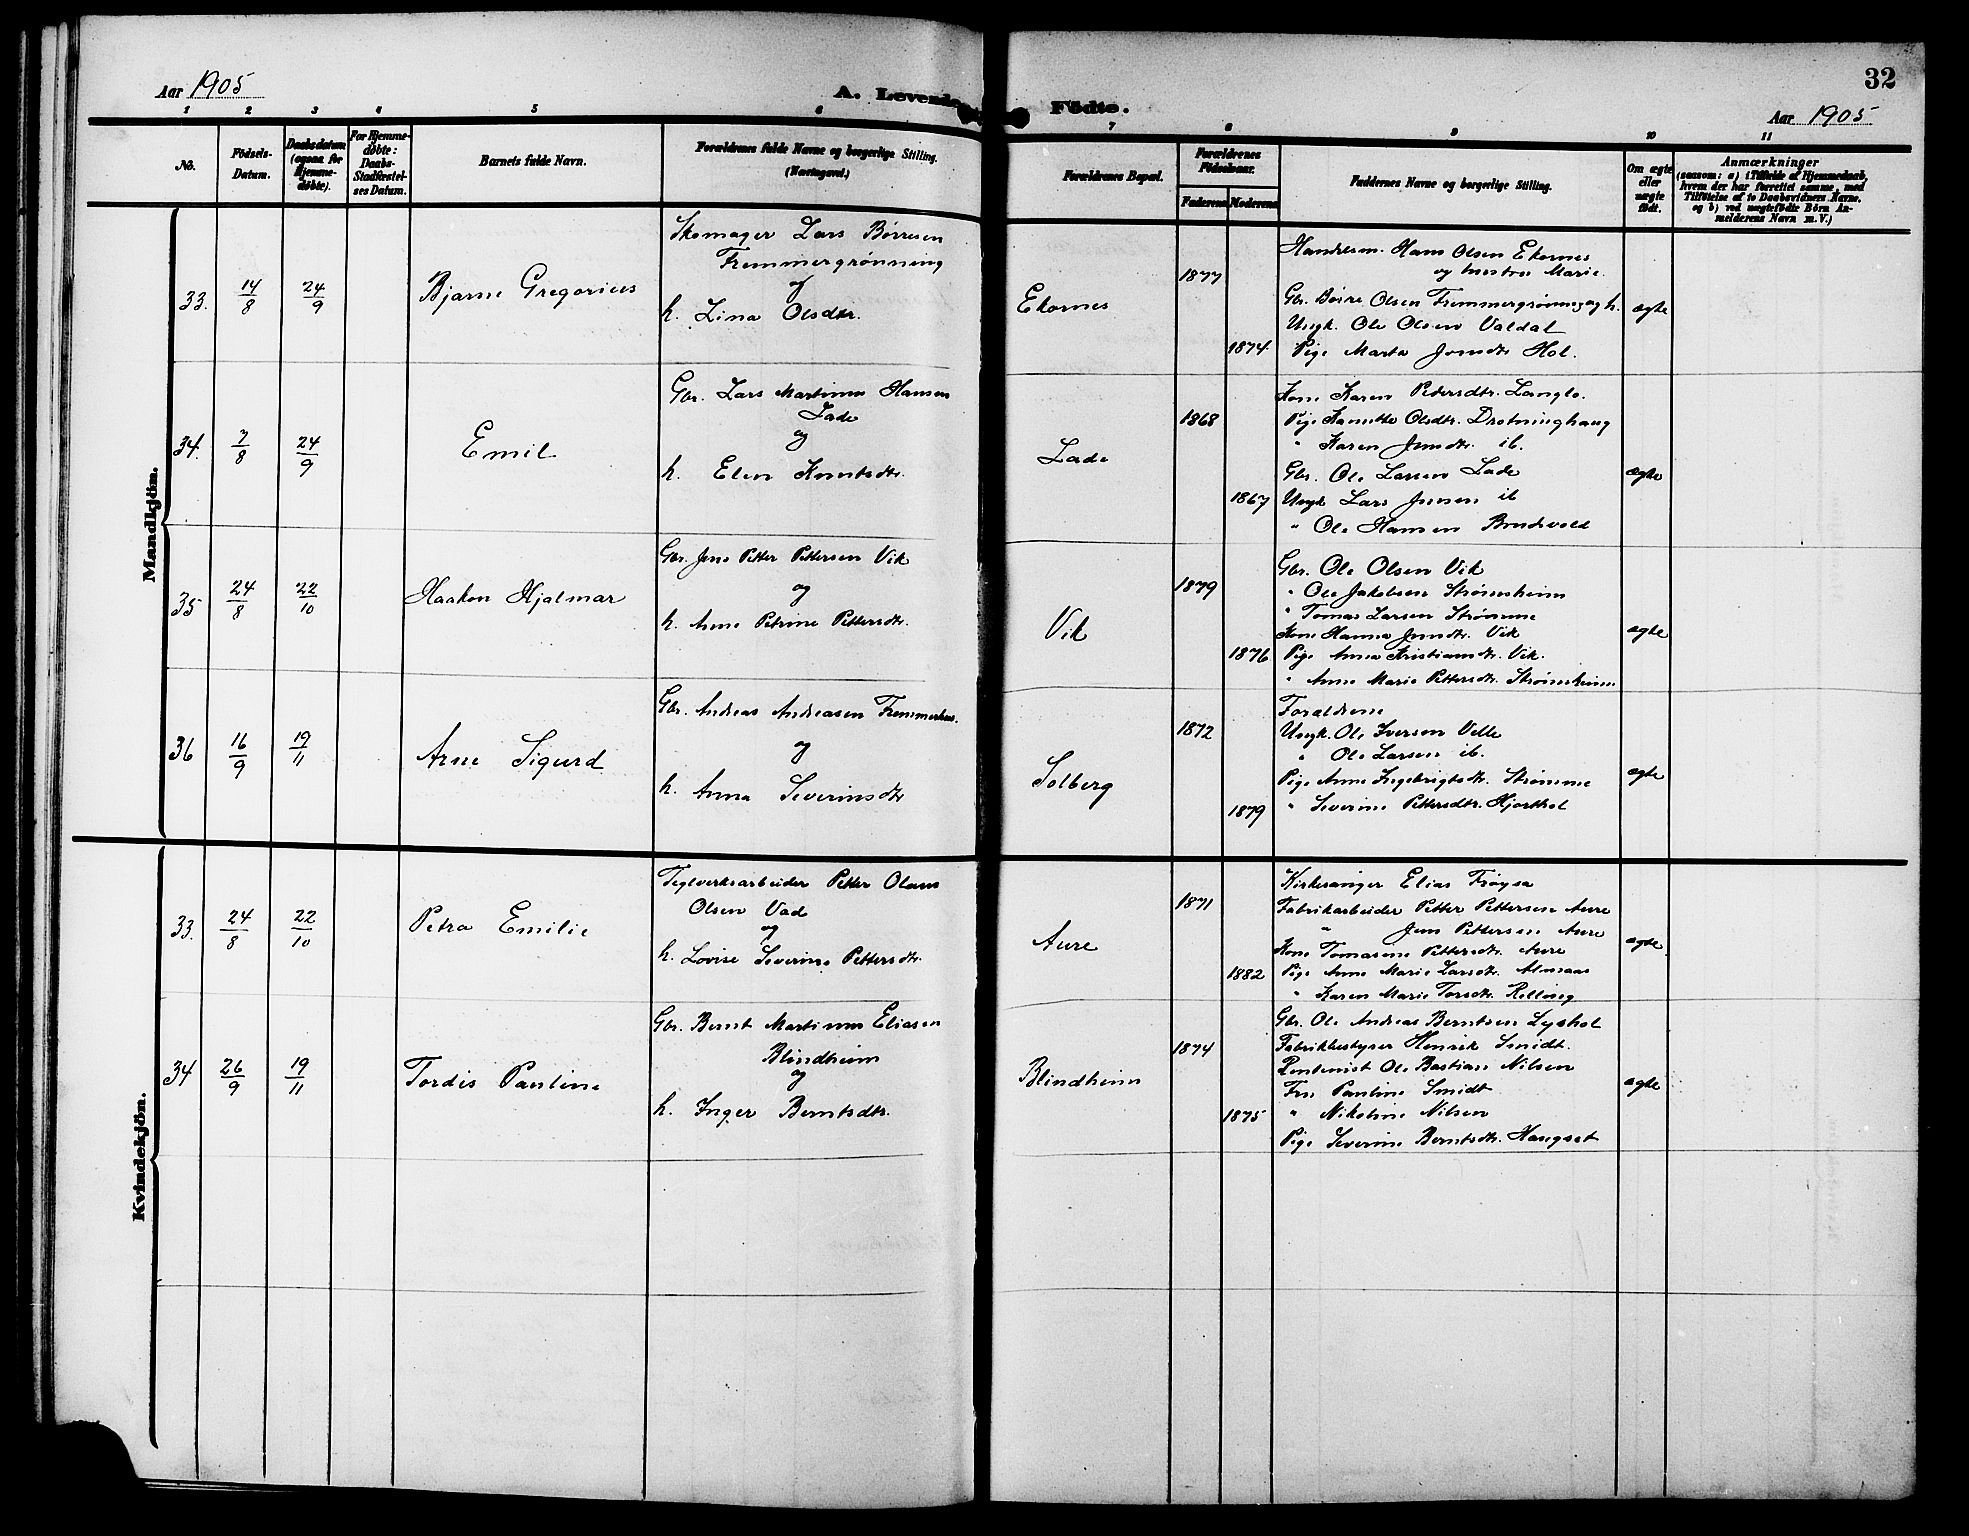 Aar 1905
A. Levende
1 2 3 4 5 6
No.
Födsels-Datum.
Daabsdatum (ogsaa for Hjemme-døbte).
For Hjemme-døbte: Daabs-Stadfæstel-ses Datum.
Barnets fulde Navn.
Forældrenes fulde Navne og borgerlige Stilling.
(Næringsvei.)
Mandkjön.
33. 14/8 24/9 Bjarne Gregorius
Skomager Lars Børresen
Fremmergrønning
og
h. Lina Olsdtr.
34. 7/8 24/9 Emil
Gbr. Lars Martinus Hansen
Lade
og
h. Elen Knutsdtr.
35 24/8 22/10 Haakon Hjalmar
Gbr. Jens Petter Pettersen Vik
og
h. Anne Petrine Pettersdtr.
36 16/9 19/11 Arne Sigurd
Gbr. Andreas Andreasen Fremmerhus.
og
h. Anna Severinsdtr
Kvindekjön.
33. 24/8 22/10 Petra Emilie
Teglverksarbeider Petter Olaus
Olsen Vad
og
h. Lovise Severine Pettersdtr.
34 26/9 19/11 Tordis Pauline
Gbr. Bernt Martinus Eliasen
Blindheim
og
h. Inger Berntsdtr.
32
Födte.
Aar 1905
7 8 9 10 11
Forældrenes Bopæl.
Forældrenes Födselsaar.
Faderens Moderens
Faddernes Navne og borgerlige Stilling.
Om ægte eller uægte født.
Anmærkninger
(saasom: a) i Tilfælde af Hjemmedaab,
hvem der har forrettet samme, med
Tilföielse af to Daabsvidners Navne,
og b) ved uægtefödte Börn An-
melderens Navn m. V.)
Ekornes 1877 1874 ægte
Handelsm. Hans Olsen Ekornes
og hustru Marie.
Gbr. Børre Olsen Fremmergrønning og h.
Ungk. Ole Olsen Valdal
Pige Marta Jonsdtr Hol.
Lade 1868 1867 ægte
Kone Karen Pedersdtr. Langlo.
Pige Kanutte Olsdtr. Drotninghaug
" Karen Jensdtr. ib.
Gbr. Ole Larsen Lade
Ungk Lars Jensen ib
" Ole Hansen Brudevold
Vik 1879 1876 ægte
Gbr. Ole Olsen Vik
" Ole Jakobsen Strømsheim
" Tomas Larsen Strømme
Kone Hanna Jensdtr. Vik
Pige Anna Kristiansdtr. Vik.
" Anne Marie Pettersdtr. Strømsheim
Solberg 1872 1879 ægte
Forældrene
Ungk. Ole Iversen Velle
" Ole Larsen ib.
Pige Anne Ingebrigtsdtr. Strømme
" Severine Pettersdtr. Hjorthol
Aure 1871 1882 ægte
Kirkesanger Elias Frøysa
Fabrikarbeider Petter Pettersen Aure
" Jens Pettersen Aure
Kone Tomasine Pettersdtr. Aure
Pige Anne Marie Larsdtr. Almaas
" Karen Marie Torsdtr. Relling
Blindheim 1874 1875 ægte
Gbr. Ole Andreas Berntsen Lyshol
Fabrikbestyrer Henrik Smidt.
Ole Bastian Nilsen
Fru Pauline Smidt
" Nikoline Nilsen
Pige Severine Berntsdtr. Haugset